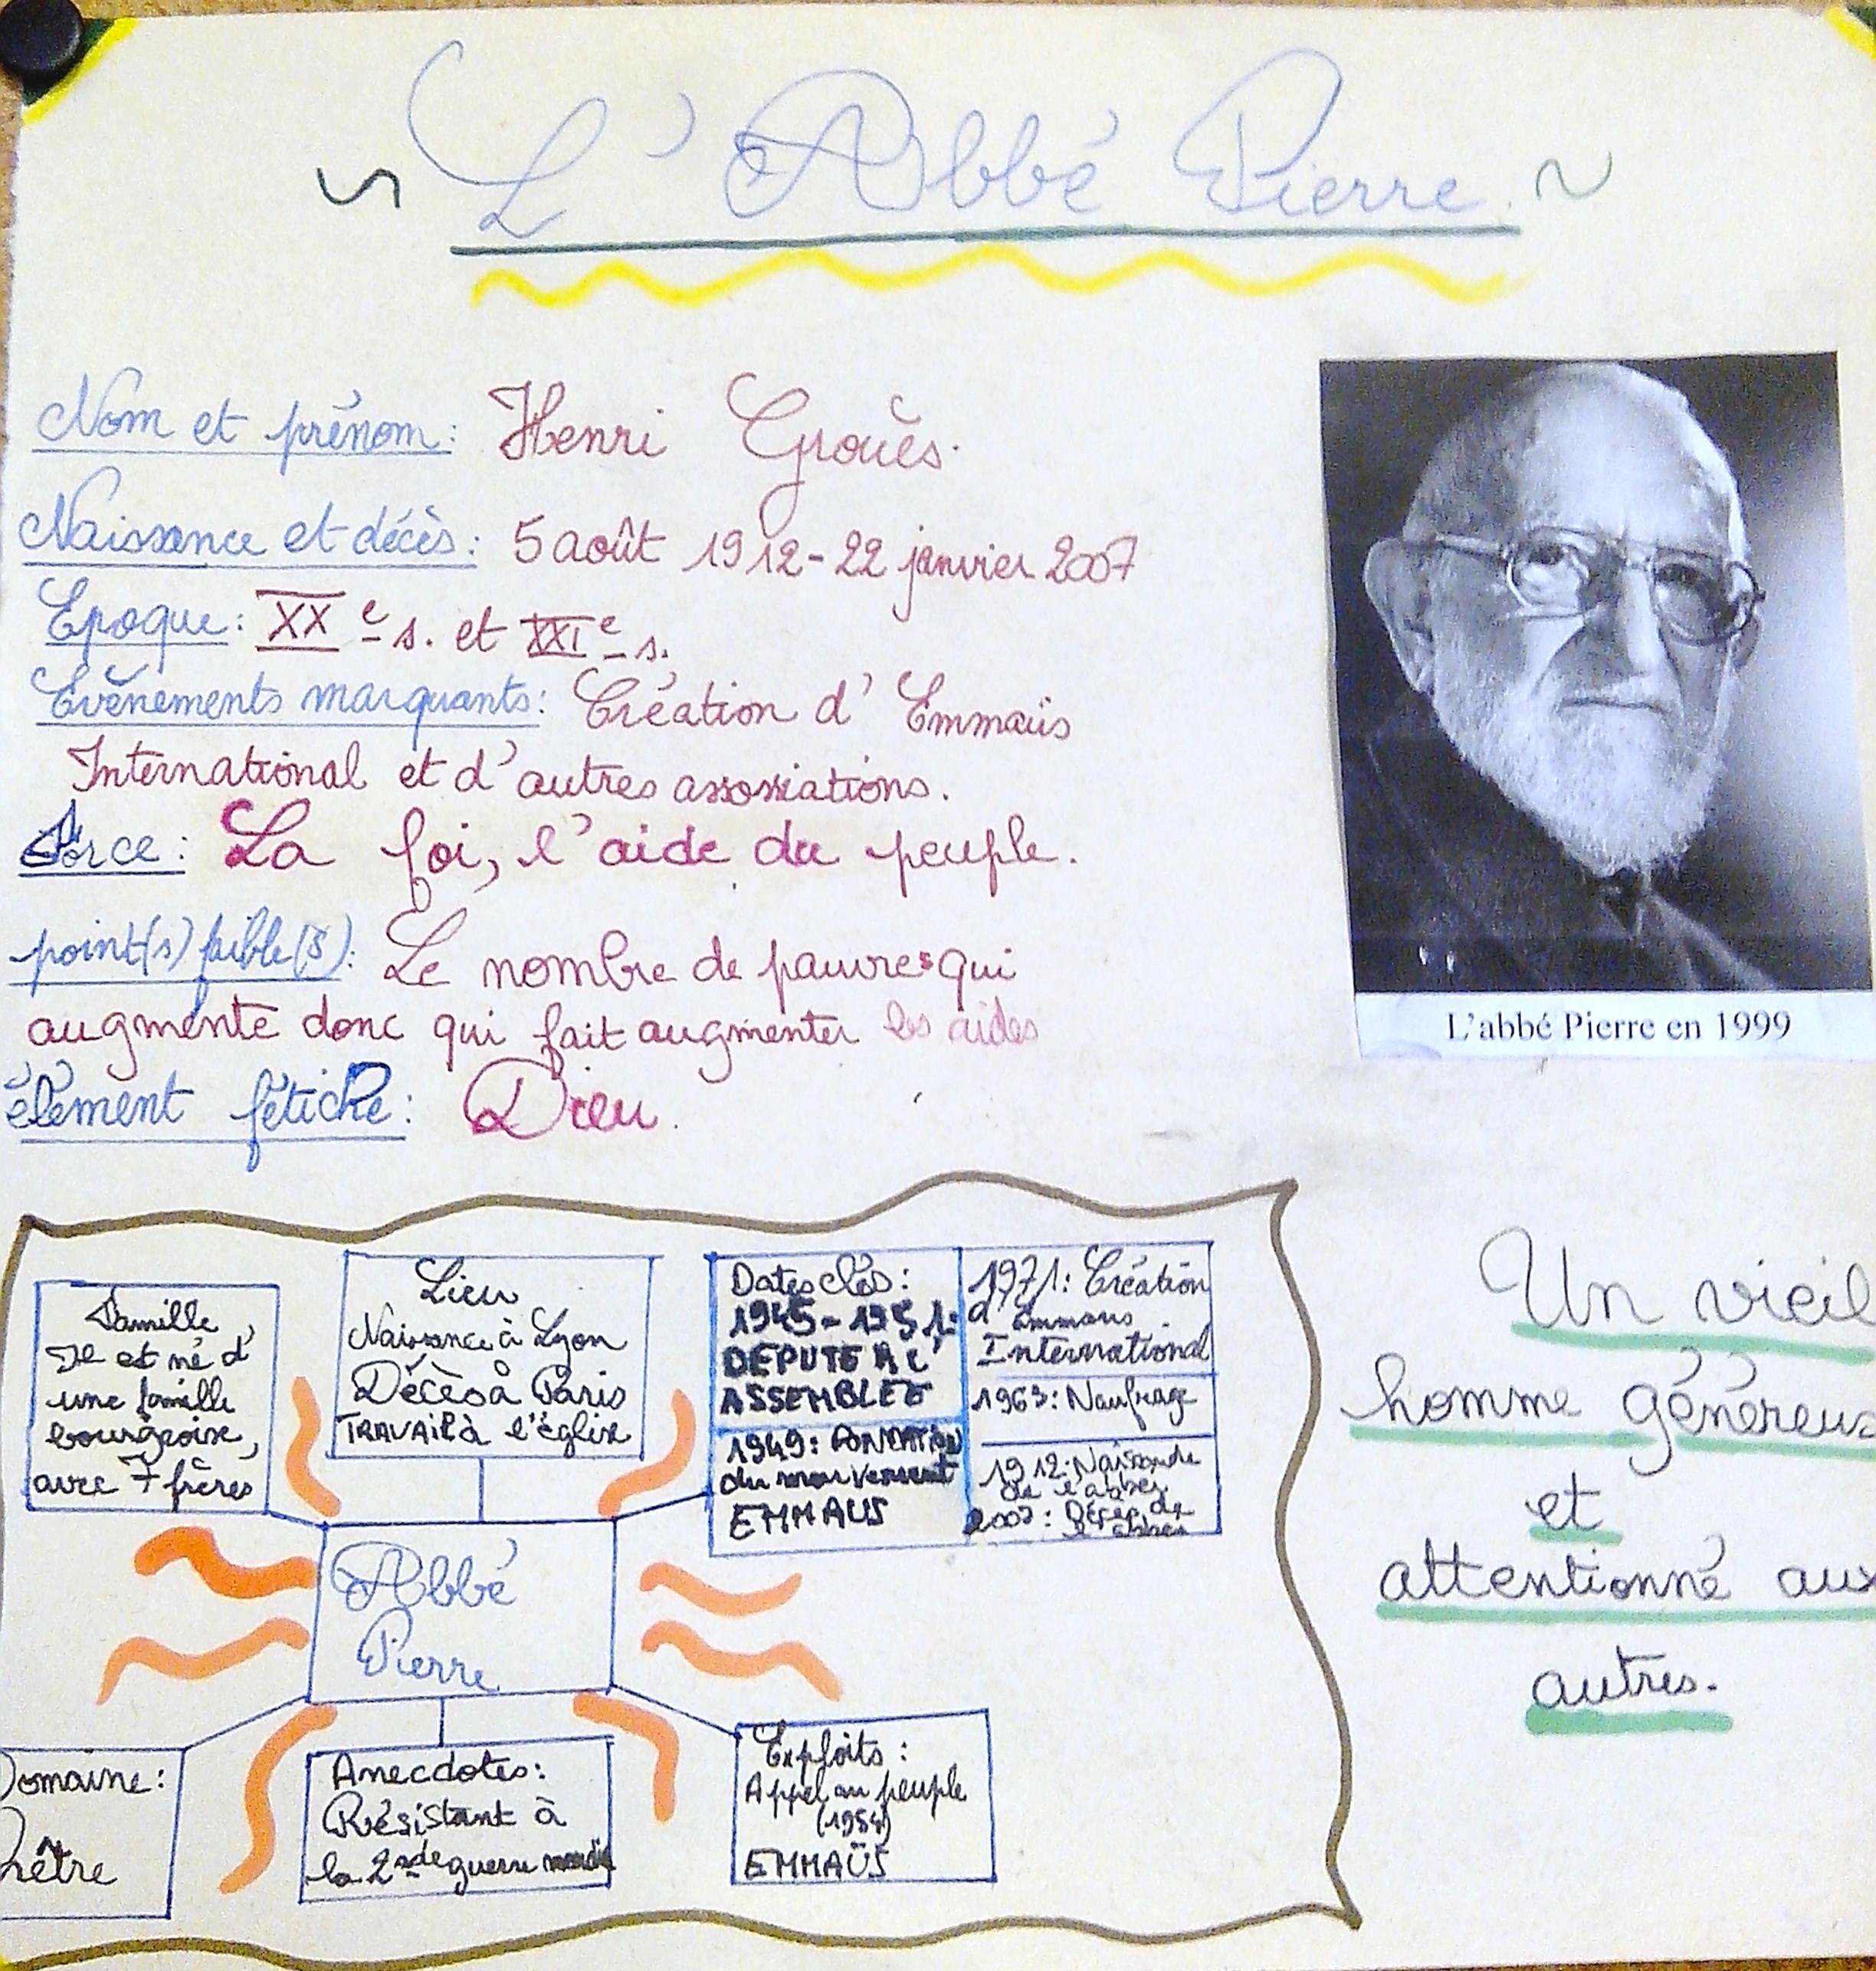 L'Abbé Pierre
Nom et prénom: Henri Grouès.
Naissance et décès: 5 août 1912-22 janvier 2007
Epoque: XXe s. et XXIe s.
Evènements marquants: Création d'Emmaüs
International et d'autres assossiations.
Force: La foi, l'aide du peuple.
point(s) faible(s): Le nombre de pauvres qui
augmente donc qui fait augmenter les aides
élément fétiche: Dieu.
L'abbé Pierre en 1999
Famille
Il et né d'
une famille
bourgeoise,
avec 7 frères
Lieu
Naissance à Lyon
Décès à Paris
TRAVAIL à l'église
Dates clés:
1945-1951:
DEPUTE A L'
ASSEMBLEE
1949: FONDATION
du mouvement
EMMAUS
1971: Création
d'Emmaus
International
1963: Naufrage
1912: Naissance
de l'abbé
2007: Décès de
l'abbé
Abbé
Pierre
Domaine:
Prêtre
Anecdotes:
Résistant à
la 2nde guerre
Exploits:
Appel au peuple
(1954)
EMMAÜS
Un vieil
homme généreux
et
attentionné aux
autres.